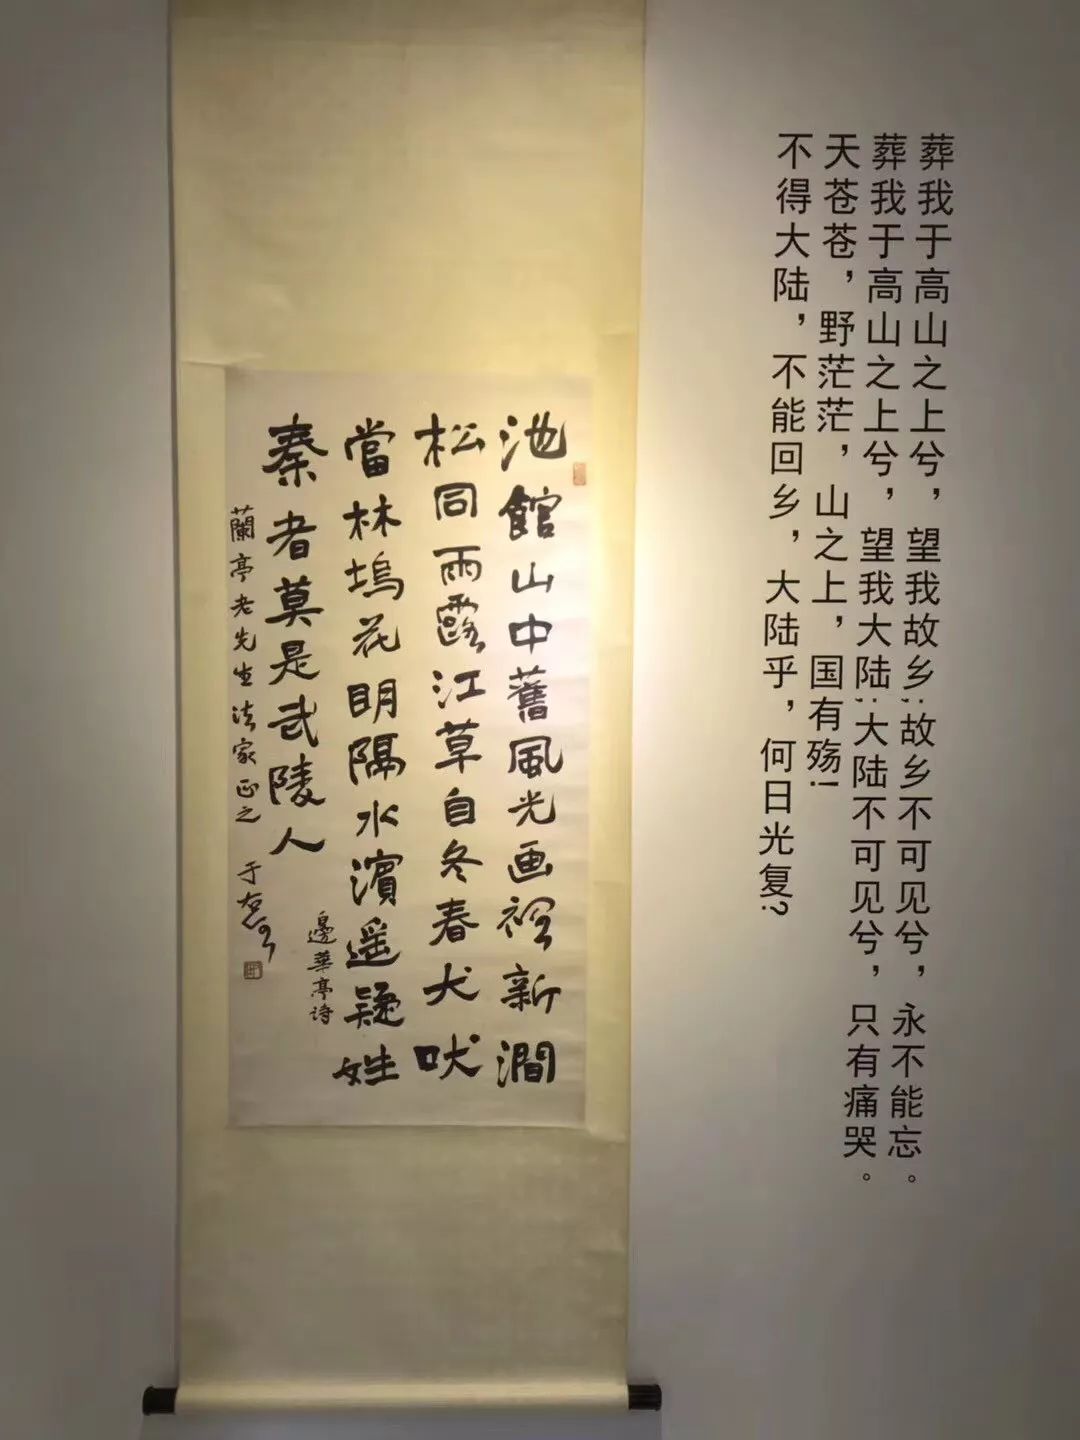 葬我于高山之上兮，望我故乡；故乡不可见兮，永不能忘。
葬我于高山之上兮，望我大陆；大陆不可见兮，只有痛哭。
天苍苍，野茫茫，山之上，国有殇！
不得大陆，不能回乡，大陆乎，何日光复？
池館山中舊風光画裡新澗
松同雨露江草自冬春犬吠
當林塢花明隔水濱遥疑姓
秦者莫是武陵人
邊華亭诗
蘭亭老先生法家正之
于右任